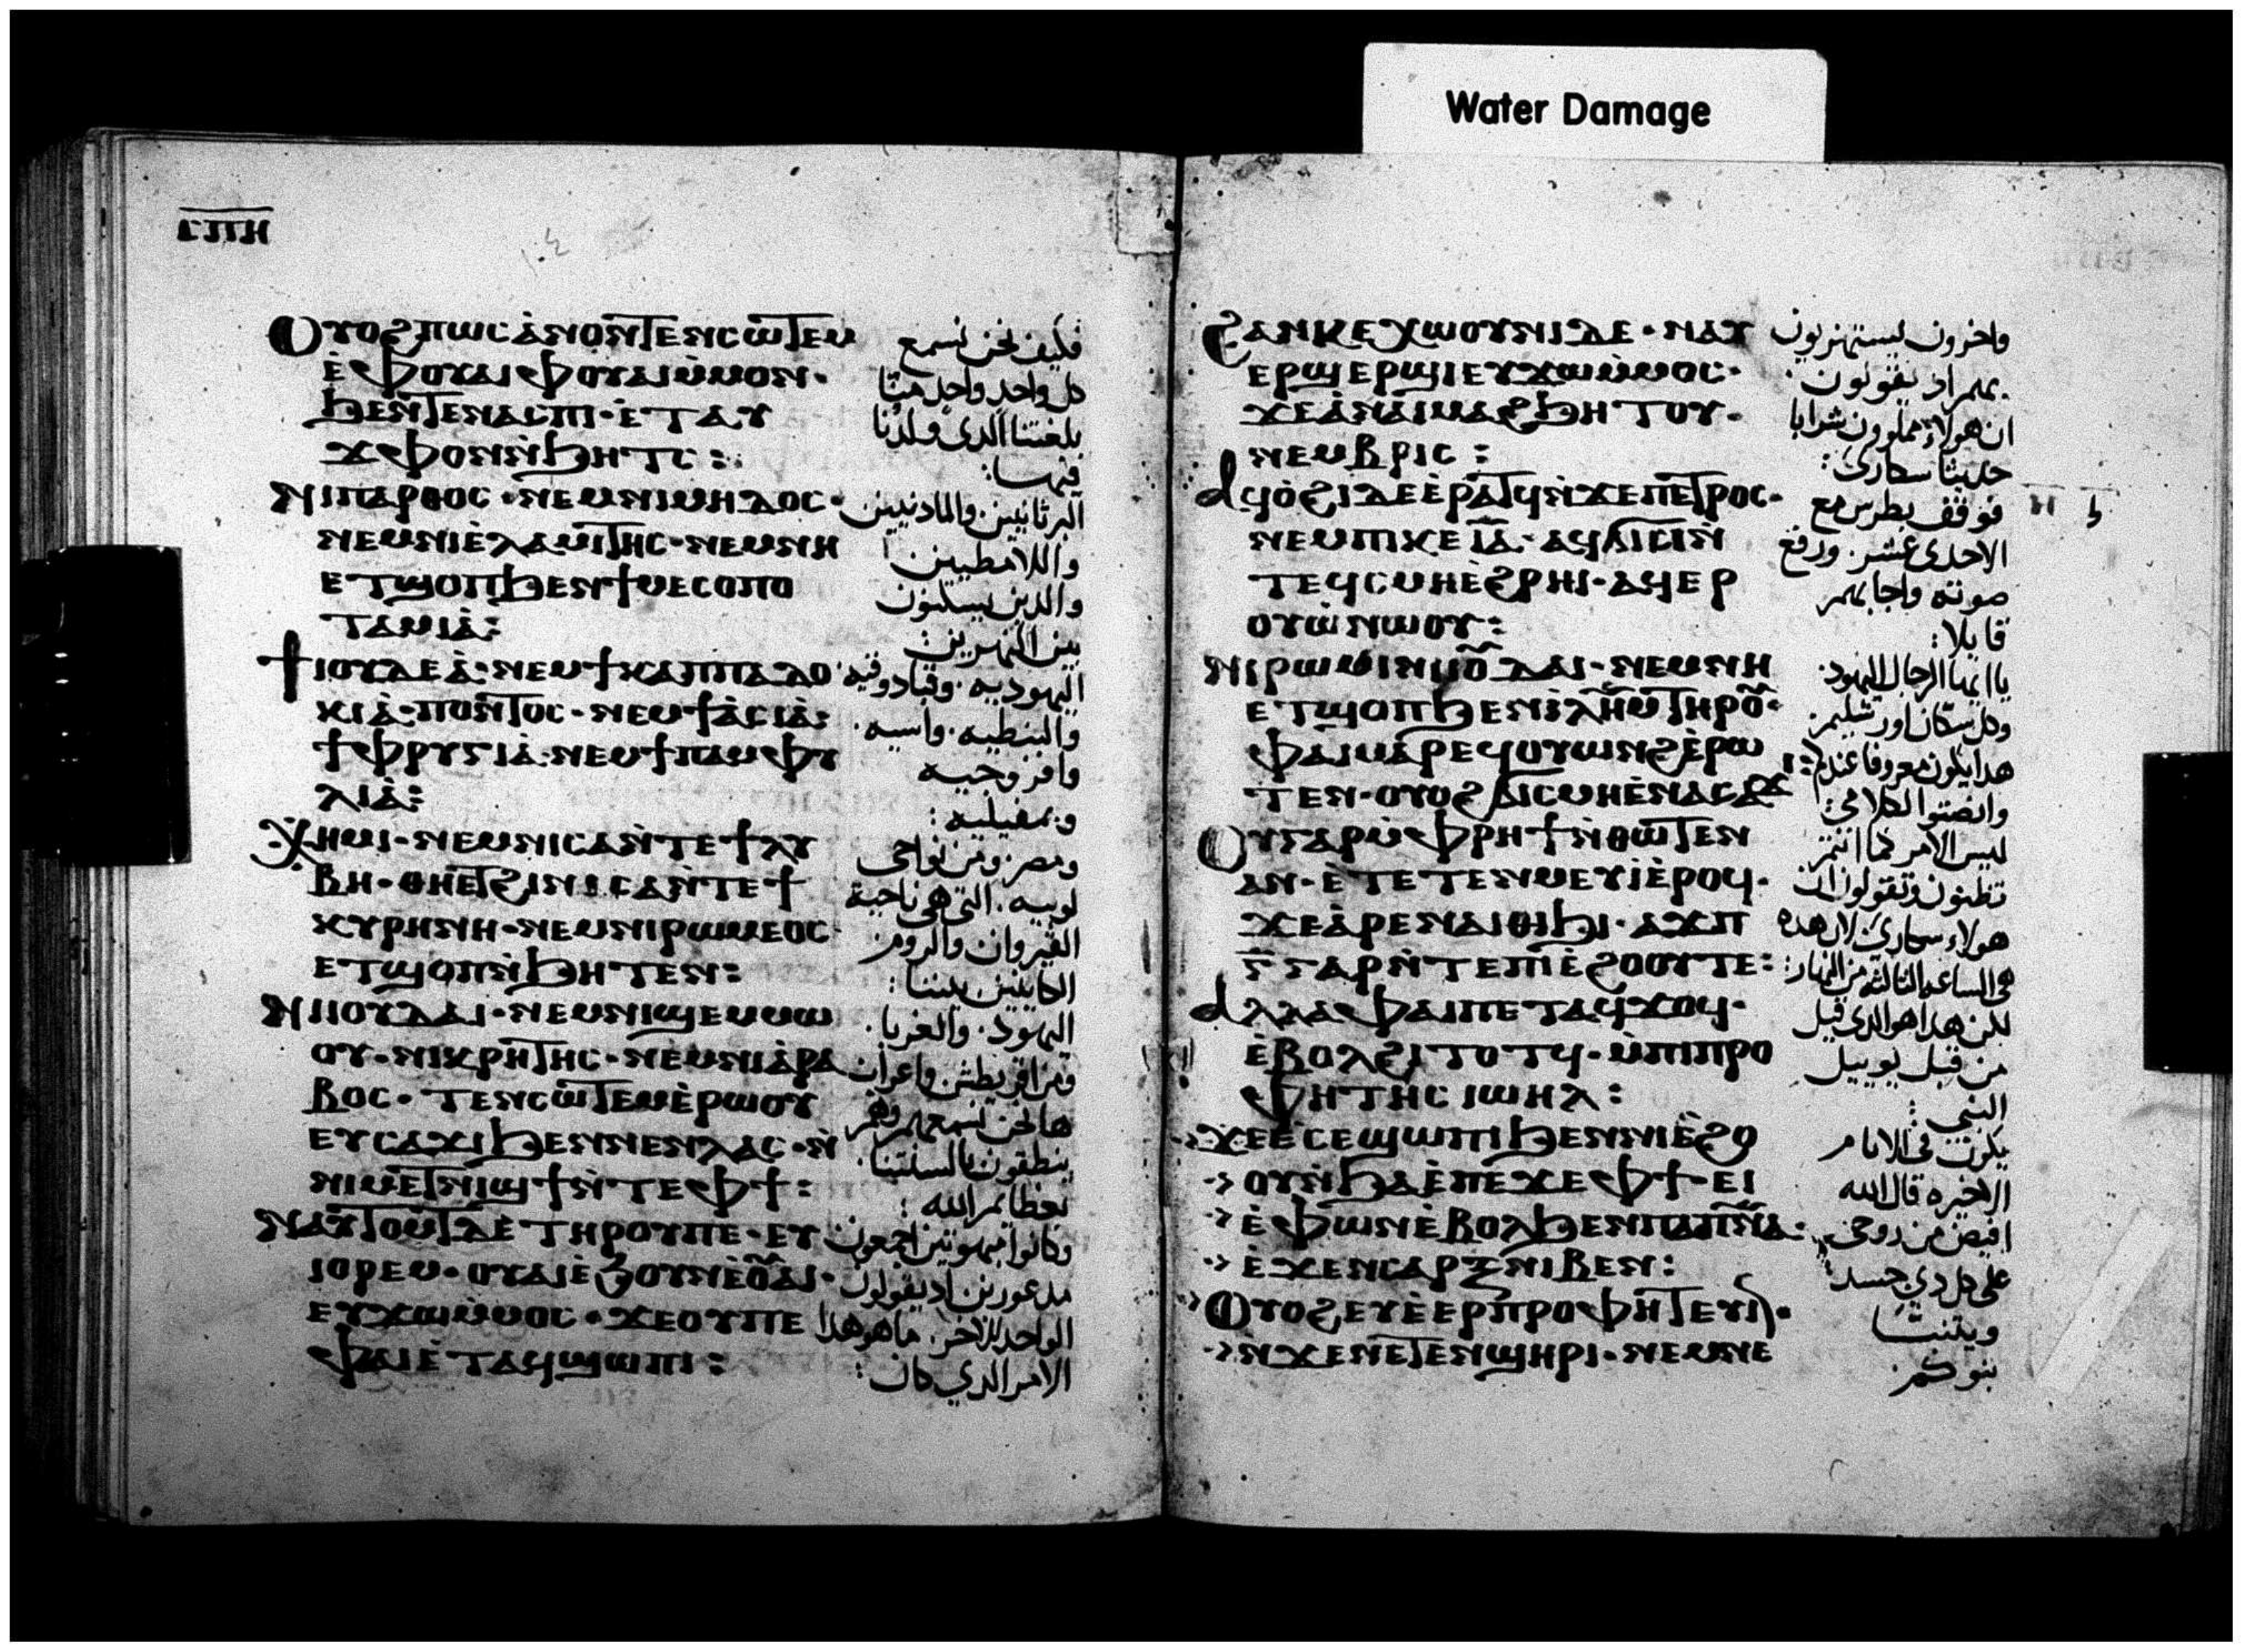 Water Damage
ⲤⲠⲎ
Ⲟⲩⲟϩ ⲡⲱⲥ ⲁ̀ⲛⲟⲛ ⲧⲉⲛⲥⲱⲧⲉⲙ
ⲉ̀ⲫⲟⲩⲁⲓ ⲫⲟⲩⲁⲓ ⲙ̀ⲙⲟⲛ·
ϧⲉⲛ ⲧⲉⲛⲁⲥⲡⲓ· ⲉ̀ⲧⲁⲩ
ϫⲫⲟⲛ ⲛ̀ϧⲏⲧⲥ:
Ⲛⲓⲡⲁⲣⲑⲟⲥ· ⲛⲉⲙ ⲛⲓⲙⲏⲇⲟⲥ·
ⲛⲉⲙ ⲛⲓⲉ̀ⲗⲁⲙⲓⲧⲏⲥ· ⲛⲉⲙ ⲛⲏ
ⲉⲧϣⲟⲡ ϧⲉⲛ ϯⲙⲉⲥⲟⲡⲟ
ⲧⲁⲙⲓⲁ̀:
Ϯⲓⲟⲩⲇⲉⲁ̀· ⲛⲉⲙ ϯⲕⲁⲡⲡⲁⲇⲟ
ⲕⲓⲁ̀· ⲡⲟⲛⲧⲟⲥ· ⲛⲉⲙ ϯⲁ̀ⲥⲓⲁ̀:
ϯⲫⲣⲩⲅⲓⲁ̀· ⲛⲉⲙ ϯⲡⲁⲙⲫⲩ
ⲗⲓⲁ̀:
Ⲭⲏⲙⲓ· ⲛⲉⲙ ⲛⲓⲥⲁ ⲛ̀ⲧⲉ ϯⲗⲩ
ⲃⲏ· ⲑⲏⲉⲧϩⲓ ⲛⲓⲥⲁ ⲛ̀ⲧⲉ ϯ
ⲕⲩⲣⲏⲛⲏ· ⲛⲉⲙ ⲛⲓⲣⲱⲙⲉⲟⲥ·
ⲉⲧϣⲟⲡ ⲛ̀ϧⲏⲧⲉⲛ:
Ⲛⲓⲓⲟⲩⲇⲁⲓ· ⲛⲉⲙ ⲛⲓϣⲉⲙⲙⲱ
ⲟⲩ· ⲛⲓⲕⲣⲏⲧⲏⲥ· ⲛⲉⲙ ⲛⲓⲁ̀ⲣⲁ
ⲃⲟⲥ· ⲧⲉⲛⲥⲱⲧⲉⲙ ⲉ̀ⲣⲱⲟⲩ
ⲉⲩⲥⲁϫⲓ ϧⲉⲛ ⲛⲉⲛⲗⲁⲥ· ⲛ̀
ⲛⲓⲙⲉⲧⲛⲓϣϯ ⲛ̀ⲧⲉ ⲫϯ:
Ⲛⲁⲩⲧⲟⲙⲧ ⲇⲉ ⲧⲏⲣⲟⲩ ⲡⲉ· ⲉⲩ
ⲓⲟⲣⲉⲙ· ⲟⲩⲁⲓ ⲉ̀ϧⲟⲩⲛ ⲉ̀ⲟ̅ⲩⲁⲓ·
ⲉⲩϫⲱ ⲙ̀ⲙⲟⲥ· ϫⲉ ⲟⲩ ⲡⲉ
ⲫⲁⲓ ⲉ̀ⲧⲁϥϣⲱⲡⲓ:
فكيف نحن نسمع
كل واحد واحد منا
بلغتنا الذي ولدنا
فيها:
البرثانيين والمادنيين
واللامطيين
والدين يسكنون
بين النهرين:
اليهوديه· وقبادوقيه
والبنطيه· واسيه·
وافروجيه
وبمفيليه:
ومصر· ومن نواحي
لوبيه· التي هي ناحية
القيروان والروم
الكاينين بيننا:
اليهود· والغربا·
ومن اقريطش واعراب
ها نحن نسمعهم وهم
ينطقون بالسنتنا·
بعظايم الله:
وكانوا مبهوتين اجمعون
مدعورين اد يقولون
الواحد للاخر· ما هو هدا
الامر الدي كان:
Ϩⲁⲛⲕⲉⲭⲱⲟⲩⲛⲓ ⲇⲉ· ⲛⲁⲩ
ⲉⲣϣⲉⲣϣⲓ ⲉⲩϫⲱ ⲙ̀ⲙⲟⲥ·
ϫⲉ ⲁ̀ ⲛⲁⲓ ⲙⲁϩ ϧⲏⲧⲟⲩ·
ⲛⲉⲙⲃⲣⲓⲥ:
Ⲁϥⲟ̀ϩⲓ ⲇⲉ ⲉ̀ⲣⲁⲧϥ ⲛ̀ϫⲉ ⲡⲉⲧⲣⲟⲥ·
ⲛⲉⲙ ⲡⲓⲕⲉ ⲓ̅ⲁ̅· ⲁϥϭⲓⲥⲓ ⲛ̀
ⲧⲉϥⲥⲙⲏ ⲉ̀ϩⲣⲏⲓ· ⲁϥⲉⲣ
ⲟⲩⲱ̀ ⲛⲱⲟⲩ:
Ⲛⲓⲣⲱⲙⲓ ⲛⲓⲓⲟ̅ⲩⲇⲁⲓ· ⲛⲉⲙ ⲛⲏ
ⲉⲧϣⲟⲡ ϧⲉⲛ ⲓ̅ⲗ̅ⲏ̅ⲙ̅ ⲧⲏⲣⲟ̅ⲩ·
ⲫⲁⲓ ⲙⲁⲣⲉϥⲟⲩⲱⲛϩ ⲉ̀ⲣⲱ
ⲧⲉⲛ· ⲟⲩⲟϩ ϭⲓⲥⲙⲏ ⲉ̀ⲛⲁⲥⲁϫⲓ:
Ⲟⲩ ⲅⲁⲣ ⲙ̀ⲫⲣⲏϯ ⲛ̀ⲑⲱⲧⲉⲛ
ⲁⲛ· ⲉ̀ⲧⲉⲧⲉⲛⲙⲉⲩⲓ ⲉ̀ⲣⲟϥ·
ϫⲉ ⲁ̀ⲣⲉ ⲛⲁⲓ ⲑⲁϧⲓ· ⲁϫⲡ
ⲅ̅ ⲅⲁⲣ ⲛ̀ⲧⲉ ⲡⲓⲉ̀ϩⲟⲟⲩ ⲧⲉ:
Ⲁⲗⲗⲁ ⲫⲁⲓ ⲡⲉⲧⲁϥϫⲟϥ·
ⲉ̀ⲃⲟⲗ ϩⲓⲧⲟⲧϥ· ⲙ̀ⲡⲓⲡⲣⲟ
ⲫⲏⲧⲏⲥ ⲓⲱⲏⲗ:
ϫⲉ ⲉ̀ⲥⲉϣⲱⲡⲓ ϧⲉⲛ ⲛⲓⲉ̀ϩⲟ
ⲟⲩ ⲛ̀ϧⲁⲉ̀ ⲡⲉϫⲉ ⲫϯ· ⲉⲓ
ⲉ̀ⲫⲱⲛ ⲉ̀ⲃⲟⲗ ϧⲉⲛ ⲡⲁⲡ̅ⲛ̅ⲁ̅·
ⲉ̀ϫⲉⲛ ⲥⲁⲣⲝ ⲛⲓⲃⲉⲛ:
Ⲟⲩⲟϩ ⲉⲩⲉ̀ⲉⲣⲡⲣⲟⲫⲏⲧⲉⲩⲓⲛ·
ⲛ̀ϫⲉ ⲛⲉⲧⲉⲛϣⲏⲣⲓ· ⲛⲉⲙ ⲛⲉ
واخرون يستهزيون
بهم اد يقولون·
ان هولاء مملوون شرابا
حديثا سكارى:
فوقف بطرس مع
الاحدى عشر· ورفع
صوته واجابهم
قايلا:
يا ايها الرجال اليهود·
وكل سكان اورشليم·
هدا يكون معروفا عندكم:
وانصتوا لكلامي:
ليس الامر كما انتم
تظنون وتقولون ان
هولاء سكارى لان هده
هي الساعه التالته من النهار:
لكن هدا هو الدي قيل
من قبل يوييل
النبي:
يكون في الايام
الاخيره قال الله
افيض من روحي·
على كل دي جسد:
ويتنبا
بنوكم